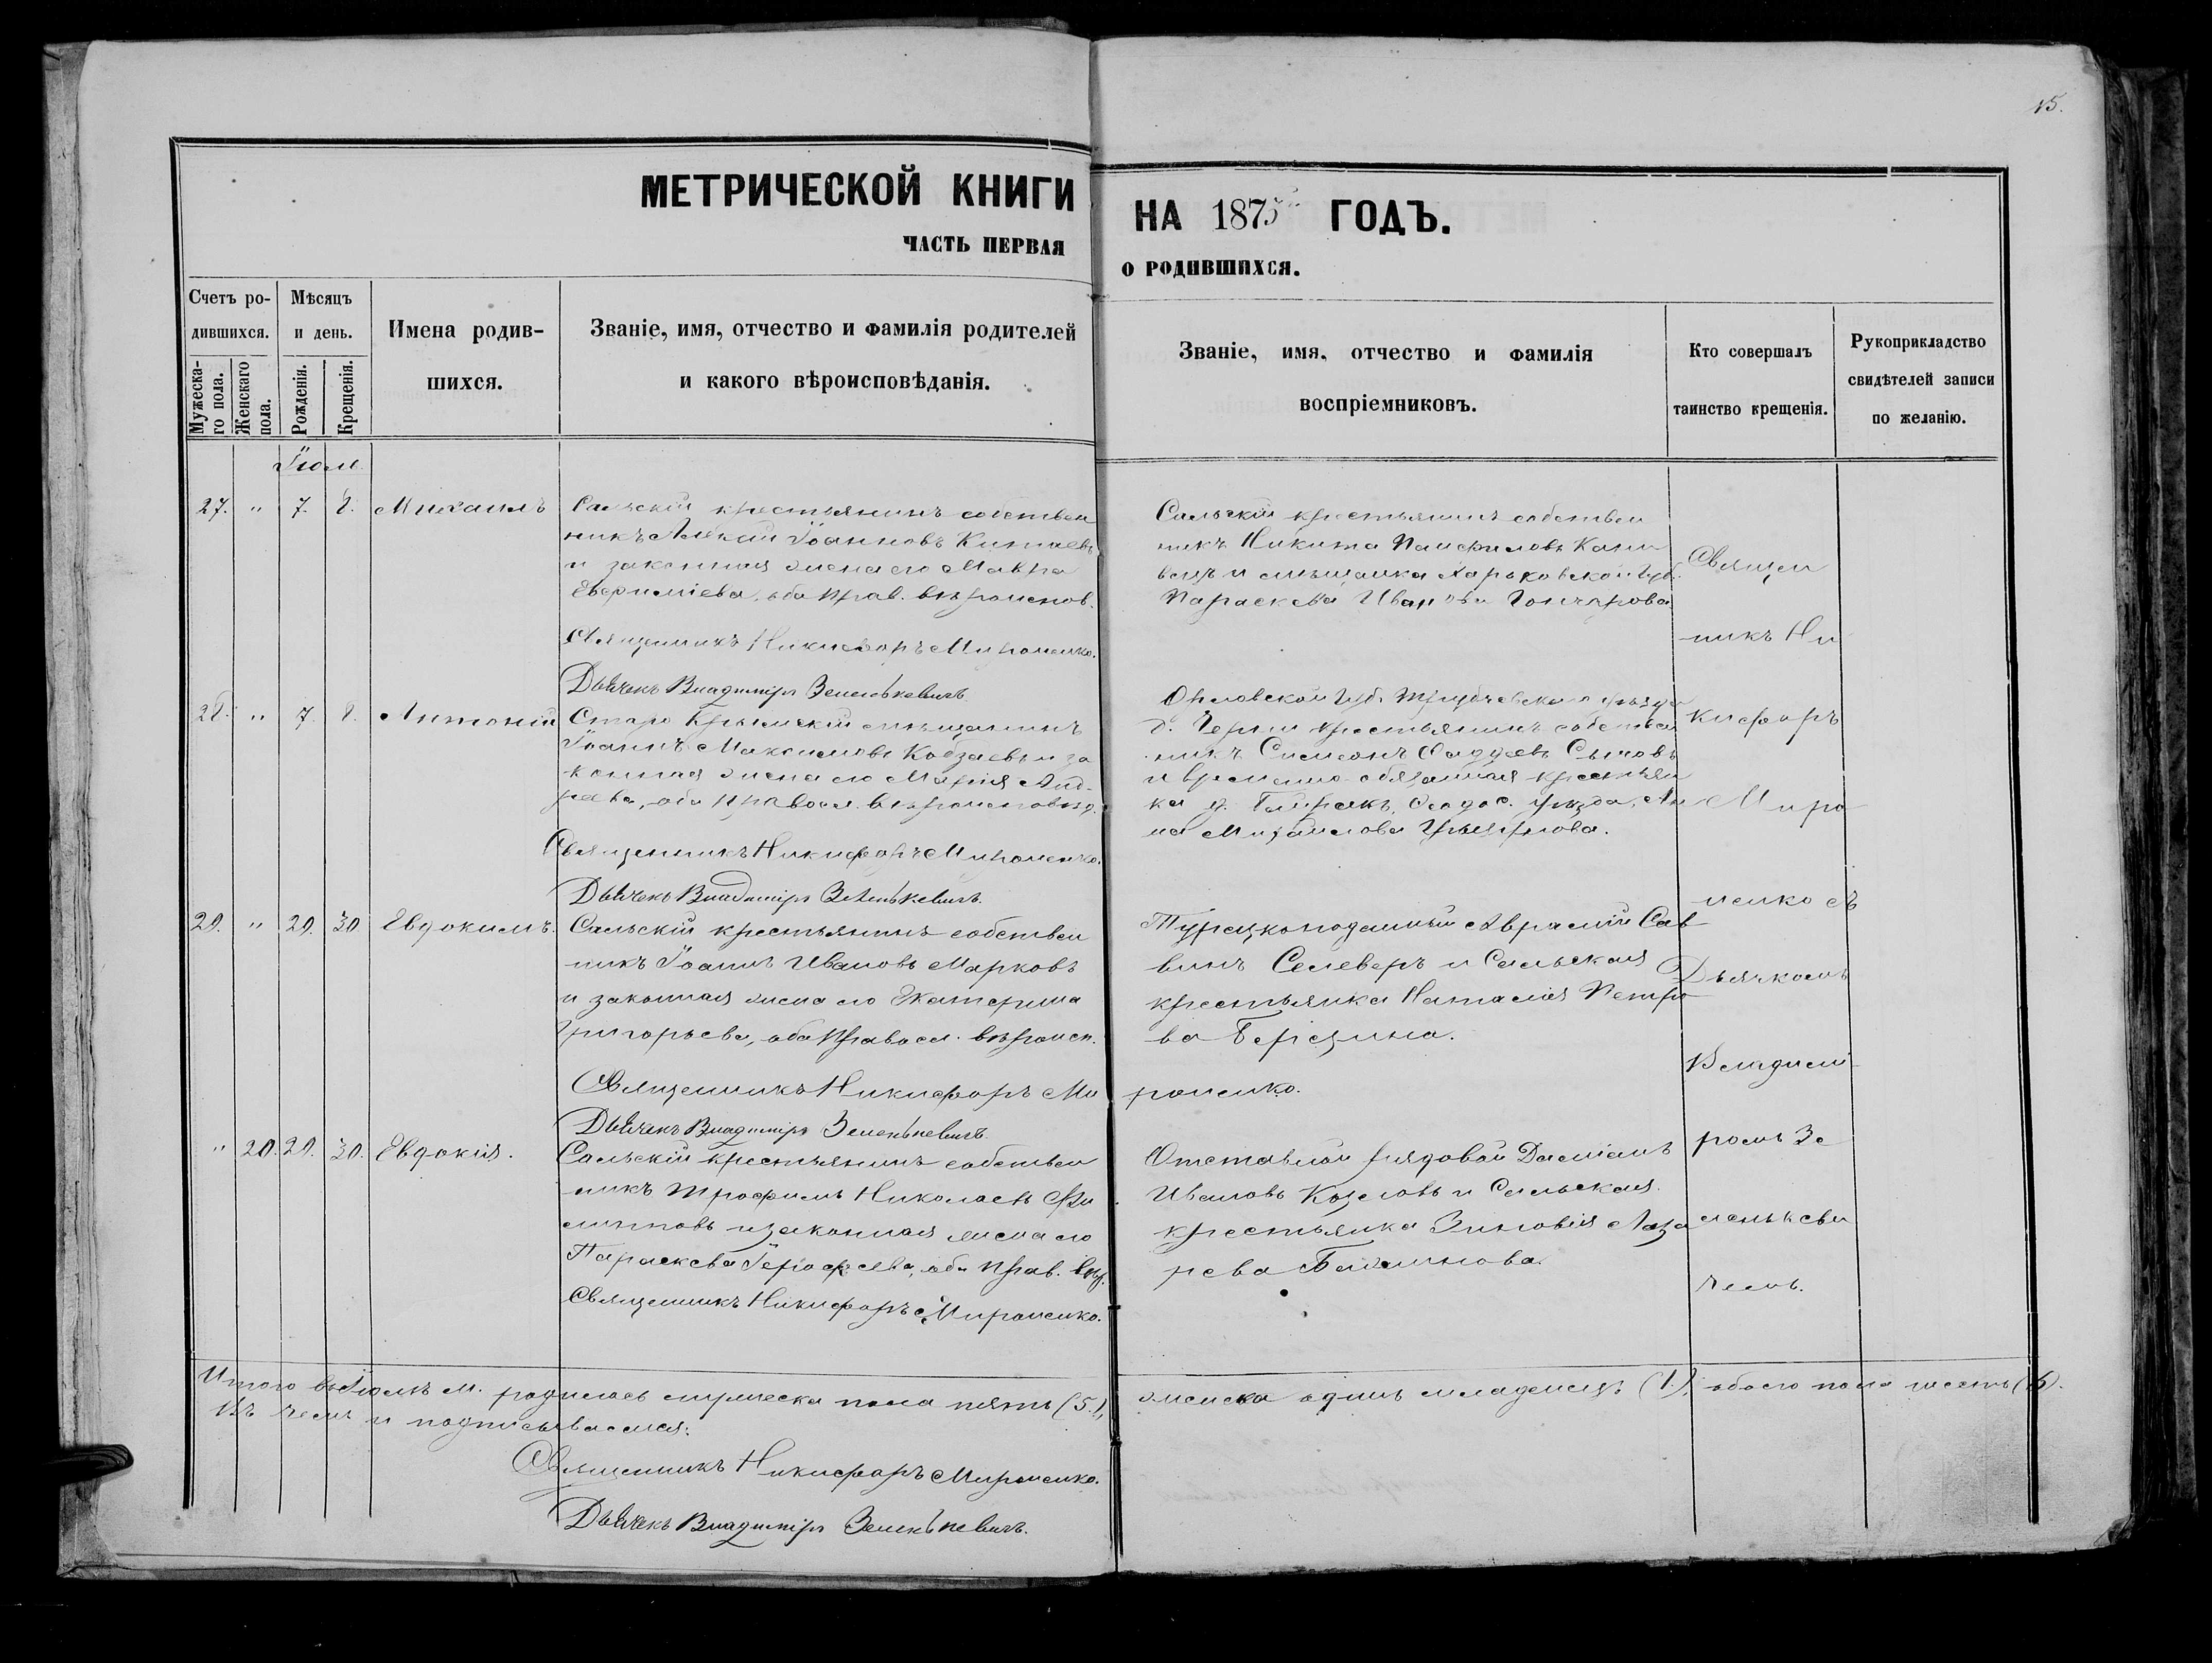 15.
МЕТРИЧЕСКОЙ КНИГИ
НА 1875 ГОДЪ.
ЧАСТЬ ПЕРВАЯ
О РОДИВШИХСЯ.
Счетъ ро-
дившихся.
Мужеска-
го пола.
Женскаго
пола.
Мѣсяцъ
и день.
Рожденія.
Крещенія.
Имена родив-
шихся.
Званіе, имя, отчество и фамилія родителей
и какого вѣроисповѣданія.
Званіе, имя, отчество и фамилія
воспріемниковъ.
Кто совершалъ
таинство крещенія.
Рукоприкладство
свидѣтелей записи
по желанію.
Іюль
27. " 7. 8. Михаилъ
Сальскій крестьянинъ собствен
никъ Іоанновъ
и законная жена его Мавра
Евфиміева, оба прав. вѣроисповѣд.
Священникъ Никифоръ Мироненко.
Дьячекъ Владиміръ Зеленькевичъ.
Сальскій крестьянинъ собствен
никъ Никита Памфиловъ Кани
вецъ и мѣщанка Харьковской губ.
Параскева Иванова Гончарова
28. " 7. 8. Антоній
Старо Крымскій мѣщанинъ
Іоаннъ Максимовъ Кобзаевъ и за
конная жена его Марія Анд-
реева, оба правосл. вѣроисповѣд.
Священникъ Никифоръ Мироненко.
Дьячекъ Владиміръ Зеленькевичъ.
Орловской губ. Трубчевскаго уѣзда
д. крестьянинъ собствен
никъ Симеонъ Фаддеевъ
и временно-обязанная крестьян
ка д. Феодос. уѣзда, Ан
на Михайлова
29. " 29. 30 Евдокимъ.
Сальскій крестьянинъ собствен
никъ Іоаннъ Ивановъ Марковъ
и законная жена его Екатерина
Григорьева, оба правосл. вѣроисп.
Священникъ Никифоръ Ми
роненко.
Дьячекъ Владиміръ Зеленькевичъ.
Турецкоподанный Аврамій Сав
винъ Селеверъ и Сальская
крестьянка Наталія Петро
ва
" 20. 29. 30. Евдокія.
Сальскій крестьянинъ собствен
никъ Трофимъ Николаевъ Фи
липповъ и законная жена его
Параскева оба прав. вѣр.
Священникъ Никифоръ Мироненко.
Отставной рядовой Даміанъ
Ивановъ Козловъ и Сальская
крестьянка Зиновія Лаза
рева
Священ
никъ Ни
кифоръ
Миро
ненко съ
Дьячкомъ
Владимі
ромъ Зе
ленькеви
чемъ.
Итого въ Іюлѣ м. родилось мужеска пола пять (5.), женска одинъ младенецъ (1.), обоего пола шесть (6).
Въ чемъ и подписываемся:
Священникъ Никифоръ Мироненко.
Дьячекъ Владиміръ Зеленькевичъ.